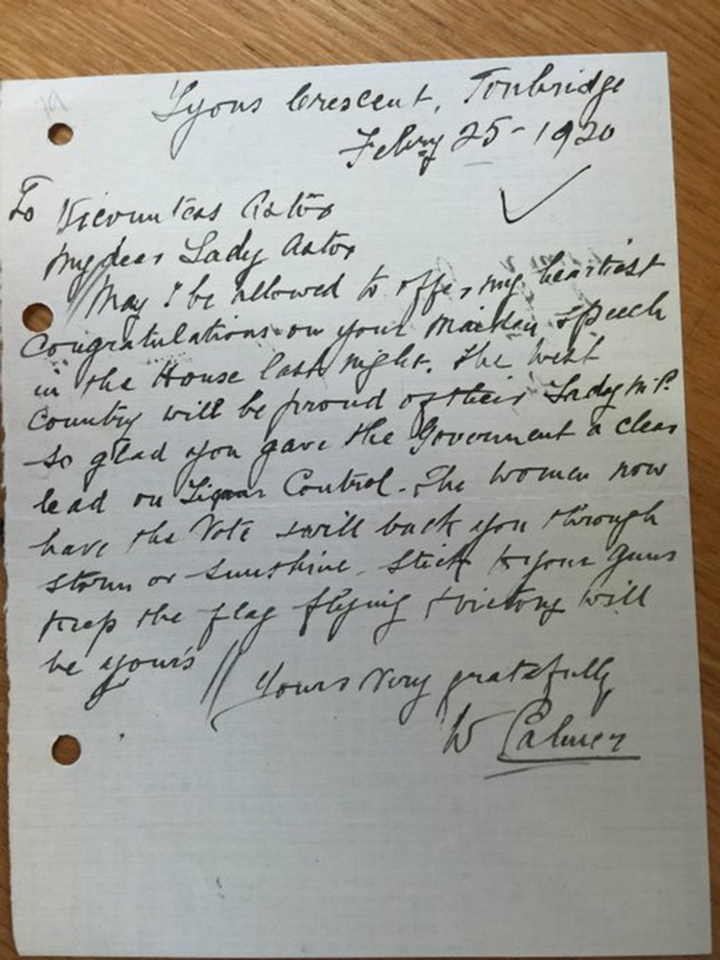 Lyons Crescent, Tonbridge
Febry 25 - 1920
To Vicountess Astor
My dear Lady Astor
May I be allowed to offer my heartiest
Congratulations on your Maiden Speech
in the House last night. The West
Country will be proud of their Lady M.P.
So glad you gave the Government a clear
lead on Liquor Control. The women now
have the Vote & will back you through
storm or sunshine. Stick to your guns
keep the flag flying & victory will
be yours
Yours very gratefully
W